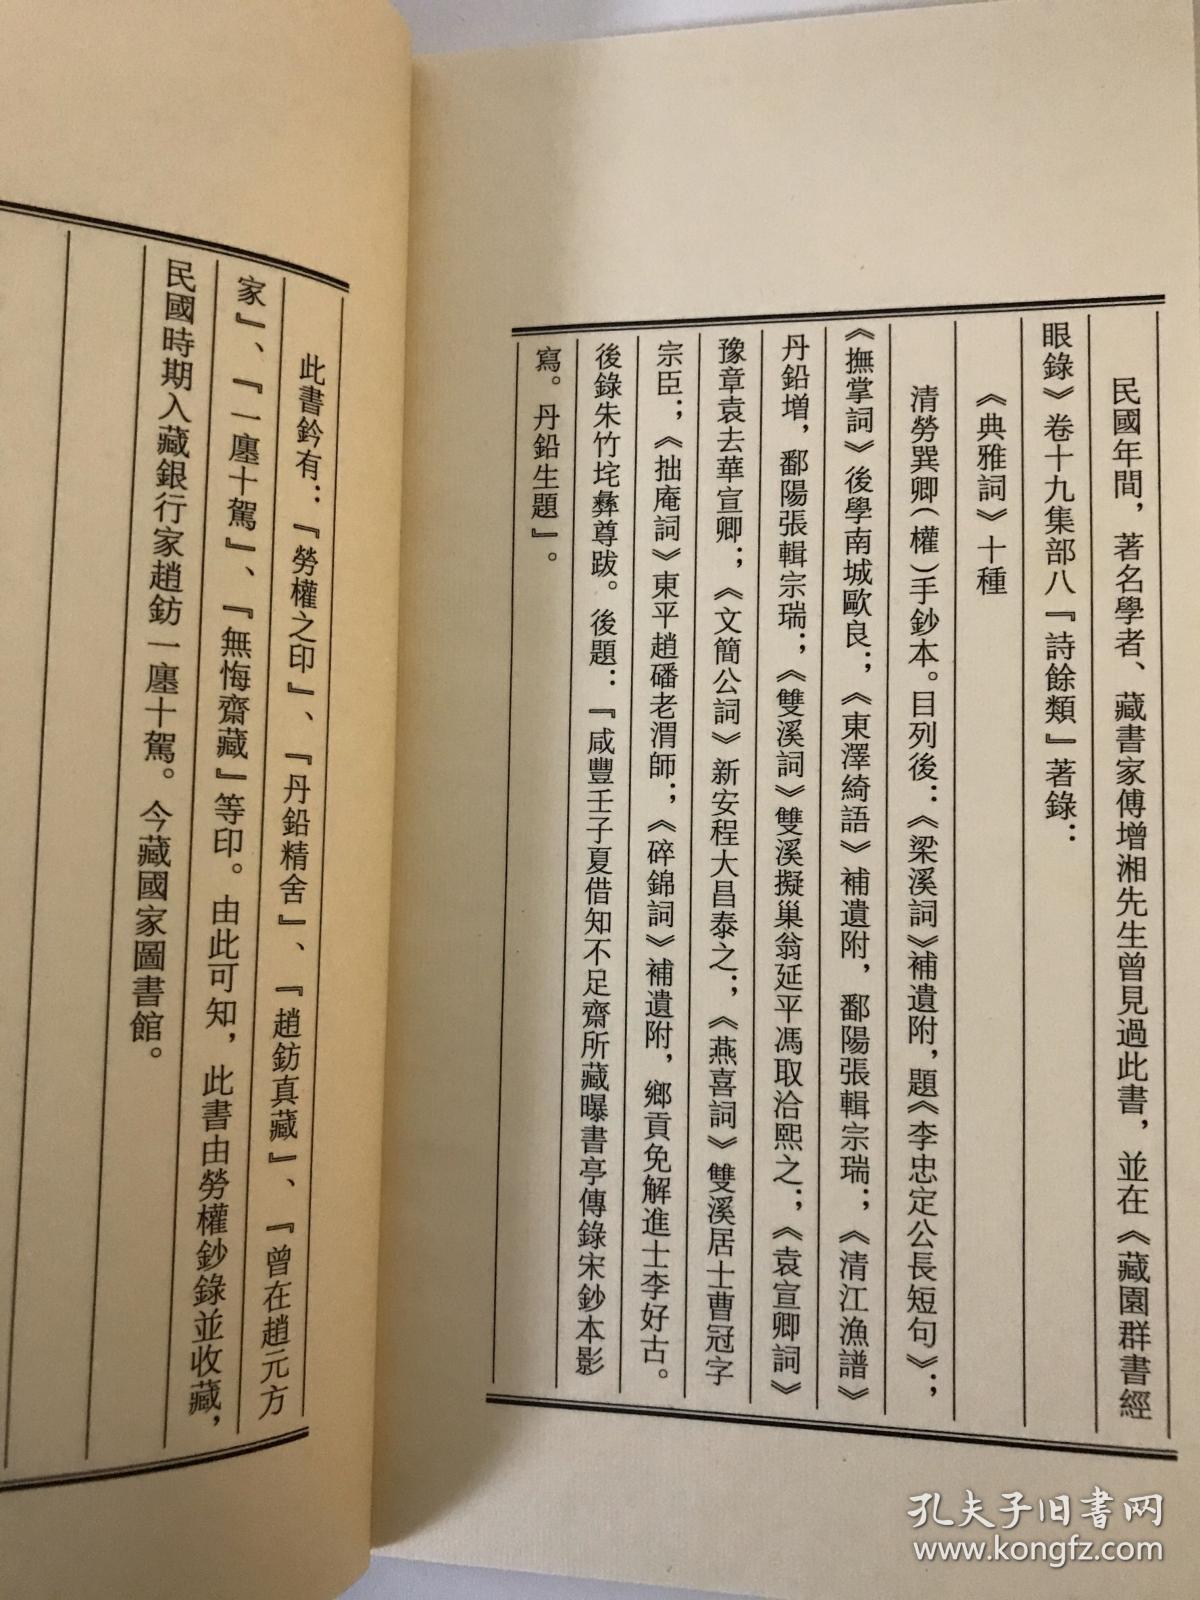 民國年間，著名學者、藏書家傅增湘先生曾見過此書，並在《藏園群書經
眼錄》卷十九集部八『詩餘類』著錄：
《典雅詞》十種
清勞巽卿（權）手鈔本。目列後：《梁溪詞》補遺附，題《李忠定公長短句》；
《撫掌詞》後學南城歐良；《東澤綺語》補遺附，鄱陽張輯宗瑞；《清江漁譜》
丹鉛增，鄱陽張輯宗瑞；《雙溪詞》雙溪擬巢翁延平馮取洽熙之；《袁宣卿詞》
豫章袁去華宣卿；《文簡公詞》新安程大昌泰之；《燕喜詞》雙溪居士曹冠字
宗臣；《拙庵詞》東平趙磻老渭師；《碎錦詞》補遺附，鄉貢免解進士李好古。
後錄朱竹垞彝尊跋。後題：『咸豐壬子夏借知不足齋所藏曝書亭傳錄宋鈔本影
寫。丹鉛生題』。
此書鈐有：『勞權之印』、『丹鉛精舍』、『趙鈁真藏』、『曾在趙元方
家』、『一廛十駕』、『無悔齋藏』等印。由此可知，此書由勞權鈔錄並收藏，
民國時期入藏銀行家趙鈁一廛十駕。今藏國家圖書館。
孔夫子旧书网
www.kongfz.com